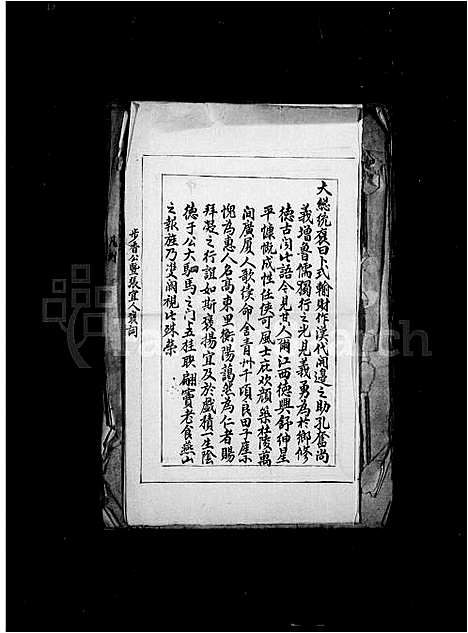 大総統褒曰卜式輸財作漢代開邊之助孔奮尚
義增魯儒獨行之光見義勇為於鄉修
德古聞此語今見其人爾江西德興舒紳星
平慷慨成性任俠可風士庇歡顏樂杜陵萬
間廣厦人歌續命含青州千頃良田子產不
愧為惠人名高東里衡陽藹然為仁者賜
拜凝之行誼如斯褒揚宜及於戲積生陰
德于公大駟馬之門五桂聯翩竇老食燕山
之報旌乃雙闕視此殊榮
步香公暨張宜人褒詞